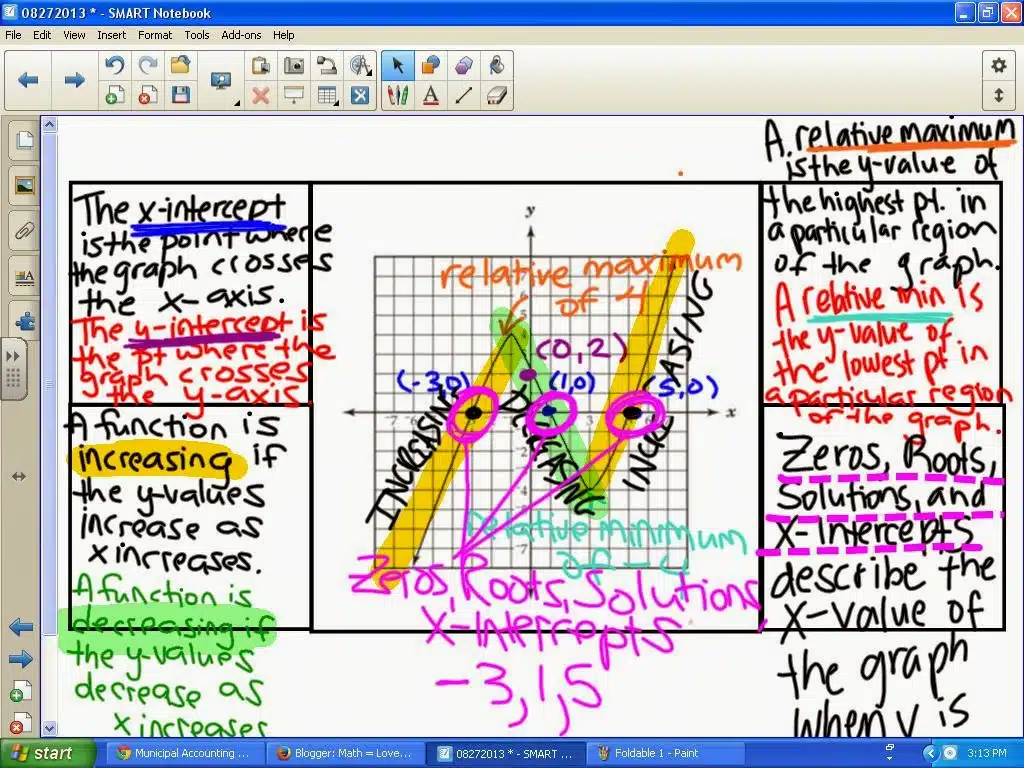 08272013 * - SMART Notebook
File Edit View Insert Format Tools Add-ons Help
The x-intercept
is the point where
the graph crosses
the x-axis.
The y-intercept is
the pt where the
graph crosses
the y-axis.
A function is
increasing if
the y-values
increase as
x increases.
A function is
decreasing if
the y-values
decrease as
x increases
y
relative maximum
of 4
(0,2)
(-3,0)
(1,0)
(5,0)
x
INCREASING
DECREASING
INCREASING
relative minimum
of -4
Zeros, Roots, Solutions
X-Intercepts
-3,1,5
A relative maximum
is the y-value of
the highest pt. in
a particular region
of the graph.
A relative min is
the y-value of
the lowest pt in
a particular region
of the graph.
Zeros, Roots,
Solutions, and
X-Intercepts
describe the
x-value of
the graph
when y is
start
Municipal Accounting ...
Blogger: Math = Love...
08272013 * - SMART ...
Foldable 1 - Paint
3:13 PM